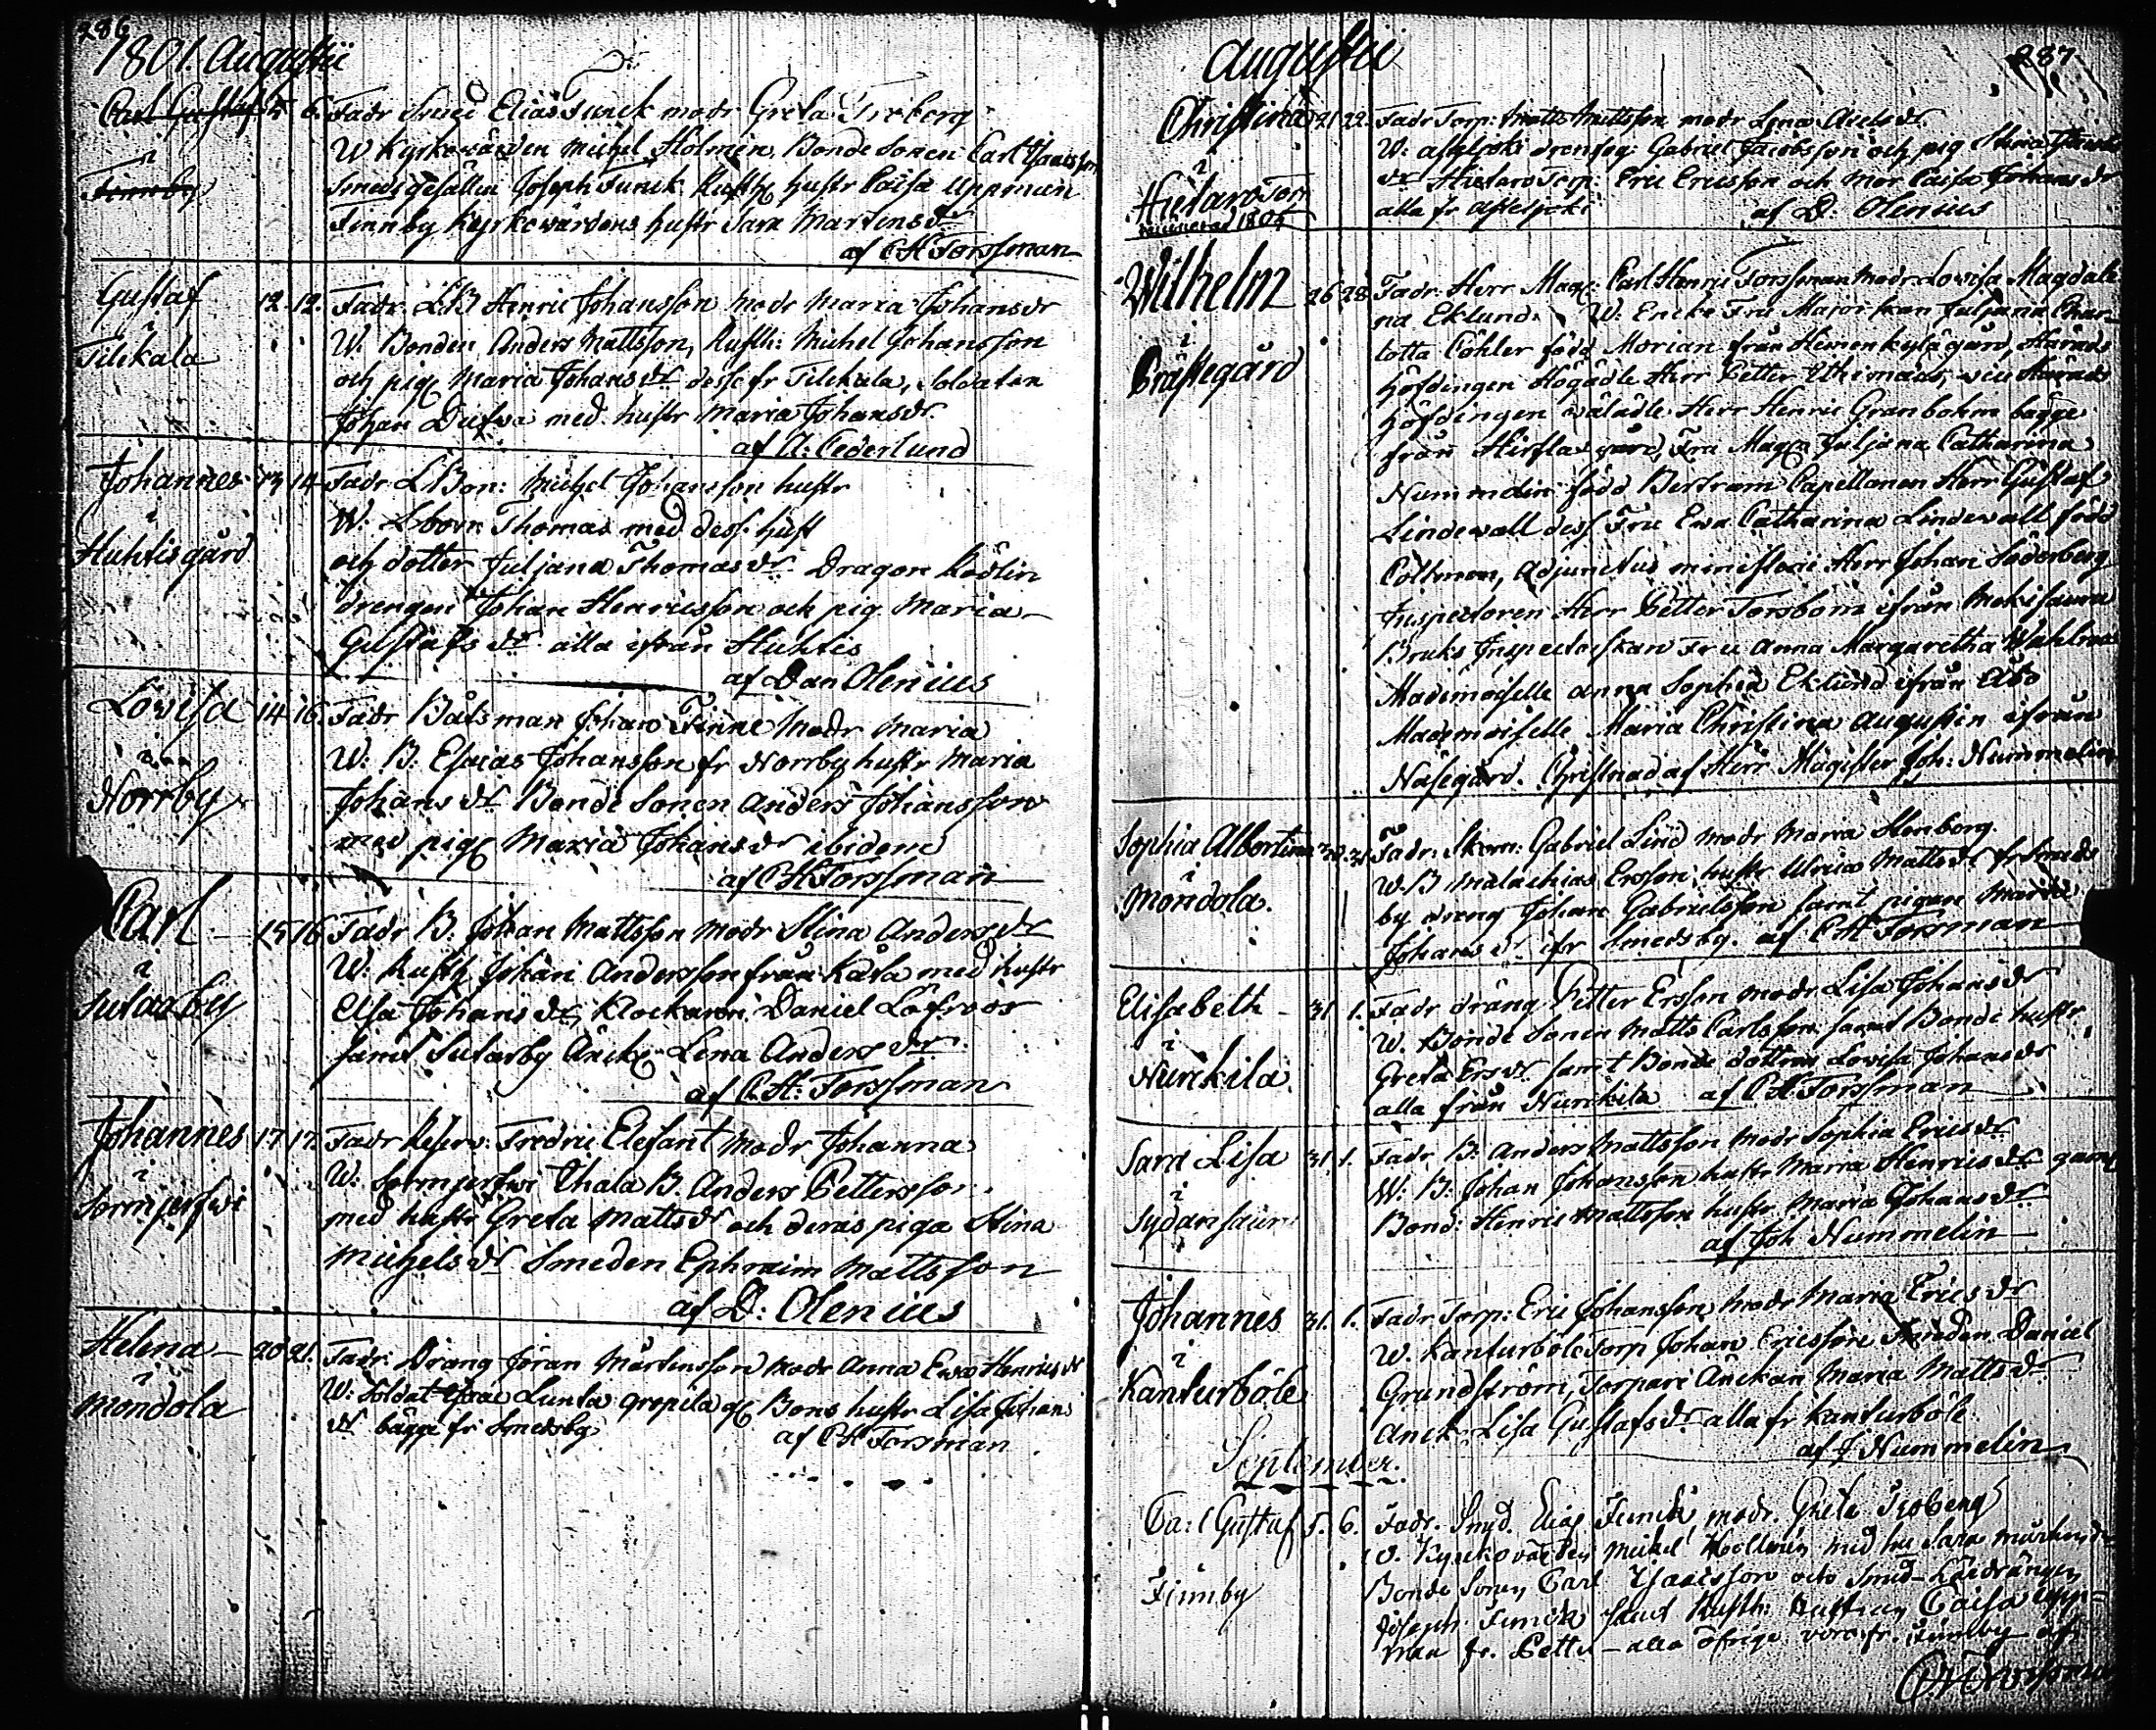 286
1801. Augustii
Carl Gustaf 5 6. Fadr Smed Elias Funck modr Greta Froberg
i W Kyrkowärden Michel Holmen, Bonde Sonen Carl Isaacsson
Finnby Smeds gesällen Joseph Funck Rusth: hustr Caisa Uppman
Finnby Kyrkowärdens hustr Sara Martens dr
af CH Forssman
Gustaf 12. 12. Fadr. LB Henric Johansson modr Maria Johans dr
i W. Bonden Anders Mattsson, Rusth: Michel Johansson
Tilckala och pig Maria Johans dr desse fr Tilckala, Soldaten
Johan Dufva med hustr Maria Johans dr
af A: Cederlund
Johannes 13 14 Fadr LBon: Michel Johansson hustr
i W. Lbonn Thomas med dess hust
Huhtis gård och dotter Juljana Thomas dr Dragon Rödlin
drengen Johan Henricsson och pig. Maria
Gustafs dr alla ifrån Huhtis
af Dan Olenius
Lovisa 14 16 Fadr Båtsman Johan Finne Modr Maria
i W. B. Esaias Johansson fr Norrby hustr Maria
Norrby Johans dr Bonde Sonen Anders Johansson
med pig Maria Johans dr ibidem
af CH Forssman
Carl 15 16 Fadr B. Johan Mattsson modr Stina Anders dr
i W. Rusth Johan Andersson från Kärla med hustr
Sutarby Elsa Johans dr, Klockaren Daniel Löfroos
samt Sutarby Äncke Lena Anders dr
af C.H. Forssman
Johannes 17 17. Fadr Reserv: Fredric Elefant modr Johanna
i W. Sormjerfwi Uhala B. Anders Pettersson
Sormjerfwi med hustr Greta Matts dr och deras piga Stina
Michels dr Smeden Ephraim Mattsson
af D: Olenius
Helena 20 21. Fadr. Dräng Jöran Mårtensson modr Anna Ewa Henrics dr
i W. Soldat Lunta Bons hustr Lisa Johans
Mondola dr bägge fr Smedsby
af CH Forsman
287
Augustii
Christina 21 22. Fadr Torp: Matts Mattsson modr Lena Axels dr
i W. drenseg: Gabriel Jacobsson och pig Stina
Hietaro Torp dr Hietaro Torp: Eric Ericsson och Mor Caisa Johans dr
1805 alla fr af D: Olenius
Wilhelm 26 28 Fadr. Herr Mag: Carl Henric Forssman Modr Lowisa Magdale
i na Eklund. W. Encke Fru Majorskan Juljana Char
Prästegård lotta Cöhler född Morian från Heimonkylä gård, Härads
höfdingen Högädle Herr Petter Ithimaeus, vice Härads
höfdingen wälädle Herr Henric Granbohm bägge
från Hirsla gård, Fru Mag: Juljana Catharina
Nummelin född Bertram Capellanen Herr Gustaf
Lindewall dess Fru Ewa Catharina Lindewall född
Poltman, Adjunctus ministerii Herr Johan Söderberg
Inspectoren Herr Petter Torsbom ifrån Mokisaura
Bruks Inspectorskan Fru Anna Margaretha Wahlroos
Mademoiselle Anna Sophia Eklund ifrån Åbo
Mademoiselle Maria Christina Augustin ifrån
Näsegård. Christnad af Herr Magister Joh: Nummelin
Sophia Albertina Fadr. Gabriel Lind modr Maria Stenborg
i W. B Malachias Ersson hustr Ulrica Matts dr fr Smeds
Mondola. by dreng Johan Gabrielsson samt pigan Maria
Johans dr ifr Smedsby. af CH Forsman
Elisabeth 31 1. Fadr dräng Petter Ersson modr Lisa Johans dr
i W. Bonde Sonen Matts Carlsson samt Bonde hustr
Nurckila Greta Ers dr samt Bonde dottren Lovisa Johans dr
alla från Nurckila af CH Forssman
Sara Lisa 31. 1. Fadr B. Anders Mattsson modr Sophia Erics dr
i W. B. Johan Johansson hustr Maria Henrics dr gaml
Sydänsaur Bond: Henric Mattsson hustr Maria Johans dr
af Joh Nummelin
Johannes 31. 1. Fadr Torp: Eric Johansson modr Maria Erics dr
i W. Kanturböle Torp Johan Ericsson Smeden Daniel
Kanturböle Grundström, Torpare Änckan Maria Matts dr
Änck Lisa Gustafs dr alla fr Kanturböle
af J Nummelin
September.
Carl Gustaf 5. 6. Fadr. Smed. Elias Funck modr. Greta Froberg
W. Kyrckovärden Mickel Hollmén med hu Sara Mårtens dr
Finnby Bonde Sonen Carl Isaacsson och Smed-Lärdrängen
Joseph Funck samt Rusth: hustrun Caisa Upp=
man fr. Pettu - alla öfrige voro fr. Finnby af
CH Forssman